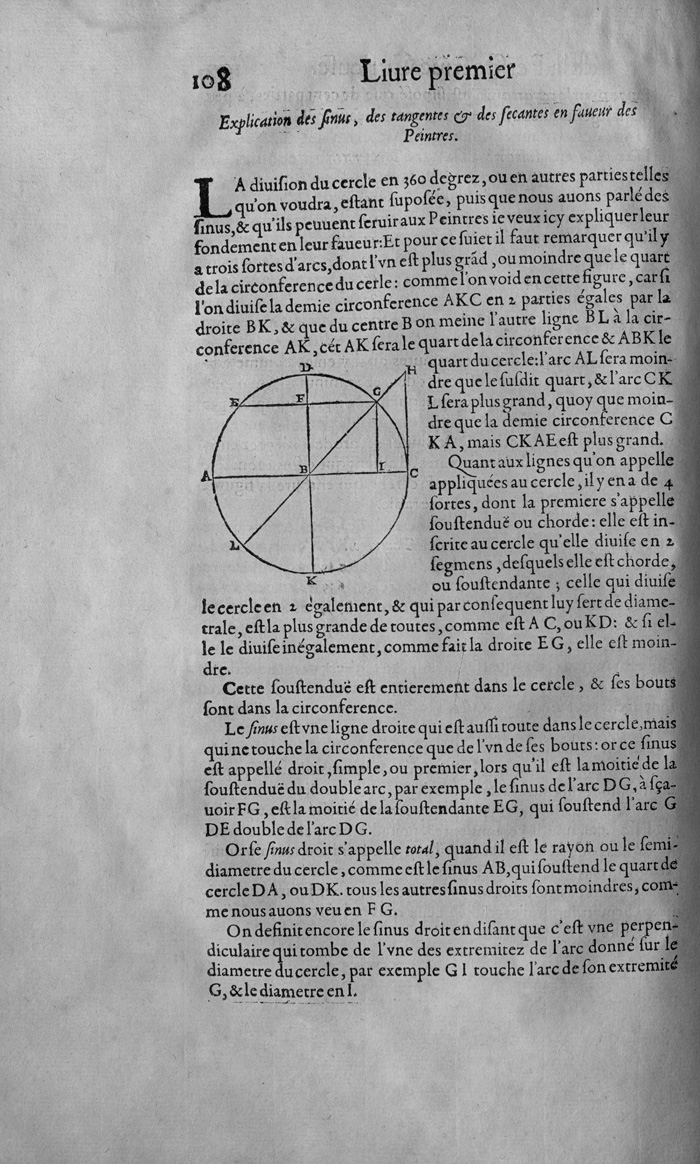 108 Liure premier
Explication des ſinus, des tangentes & des ſecantes en faueur des
Peintres.
LA diuiſion du cercle en 360 degrez, ou en autres parties telles
qu'on voudra, eſtant ſupoſée, puis que nous auons parlé des
ſinus, & qu'ils peuuent ſeruir aux Peintres ie veux icy expliquer leur
fondement en leur faueur: Et pour ce ſuiet il faut remarquer qu'il y
a trois ſortes d'arcs, dont l'vn eſt plus grãd, ou moindre que le quart
de la circonference du cerle: comme l'on void en cette figure, car ſi
l'on diuiſe la demie circonference AKC en 2 parties égales par la
droite BK, & que du centre B on meine l'autre ligne BL à la cir-
conference AK, cét AK ſera le quart de la circonference & ABK le
quart du cercle: l'arc AL ſera moin-
dre que le ſuſdit quart, & l'arc CK
L ſera plus grand, quoy que moin-
dre que la demie circonference C
KA, mais CKAE eſt plus grand.
Quant aux lignes qu'on appelle
appliquées au cercle, il y en a de 4
ſortes, dont la premiere s'appelle
ſouſtenduë ou chorde: elle eſt in-
ſcrite au cercle qu'elle diuiſe en 2
ſegmens, deſquels elle eſt chorde,
ou ſouſtendante; celle qui diuiſe
D
H
E
F
G
A
B
I
C
L
K
le cercle en 2 également, & qui par conſequent luy ſert de diame-
trale, eſt la plus grande de toutes, comme eſt A C, ou KD: & ſi el-
le le diuiſe inégalement, comme fait la droite EG, elle eſt moin-
dre.
Cette ſouſtenduë eſt entierement dans le cercle, & ſes bouts
ſont dans la circonference.
Le ſinus eſt vne ligne droite qui eſt auſſi toute dans le cercle, mais
qui ne touche la circonference que de l'vn de ſes bouts: or ce ſinus
eſt appellé droit, ſimple, ou premier, lors qu'il eſt la moitié de la
ſouſtenduë du double arc, par exemple, le ſinus de l'arc DG, à ſça-
uoir FG, eſt la moitié de la ſouſtendante EG, qui ſouſtend l'arc G
DE double de l'arc DG.
Or ſe ſinus droit s'appelle total, quand il eſt le rayon ou le ſemi-
diametre du cercle, comme eſt le ſinus AB, qui ſouſtend le quart de
cercle DA, ou DK. tous les autres ſinus droits ſont moindres, com-
me nous auons veu en F G.
On definit encore le ſinus droit en diſant que c'eſt vne perpen-
diculaire qui tombe de l'vne des extremitez de l'arc donné ſur le
diametre du cercle, par exemple G I touche l'arc de ſon extremité
G, & le diametre en I.